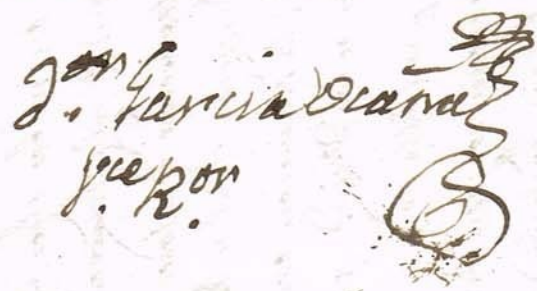 Jon Garcia Ocaña
vce Ror